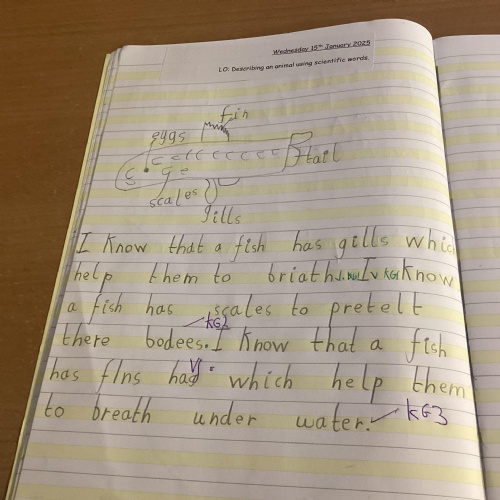 Wednesday 15th January 2025
LO: Describing an animal using scientific words.
fin
eggs
tail
scales
gills
I know that a fish has gills which
help them to briath. I know
a fish has scales to pretelt
KG2
there bodees. I know that a fish
has fins has which help them
to breath under water. KG3